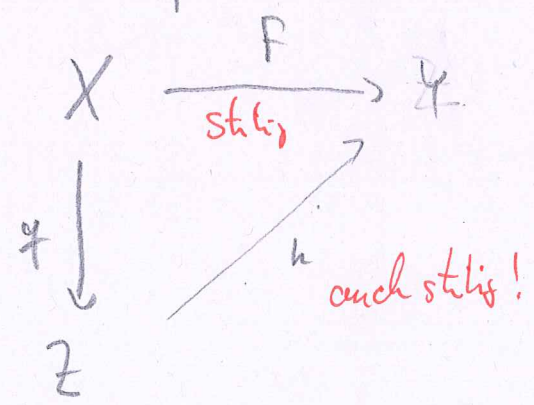 F
X Y
stetig
q h
auch stetig!
Z